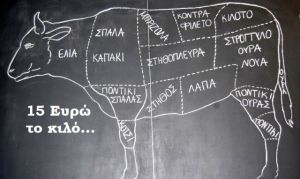 ΣΠΑΛΑ
ΜΠΡΙΖΟΛΑ
ΚΟΝΤΡΑ
ΦΙΛΕΤΟ
ΚΙΛΟΤΟ
ΕΛΙΑ
ΚΑΠΑΚΙ
ΣΤΗΘΟΠΛΕΥΡΑ
ΣΤΡΟΓΓΥΛΟ
ΟΥΡΑ
ΝΟΥΑ
ΠΟΝΤΙΚΙ
ΣΠΑΛΑΣ
ΣΤΗΘΟΣ
ΛΑΠΑ
ΠΟΝΤΙΚΙ
ΟΥΡΑΣ
ΚΟΤΣΙ
ΠΟΝΤΙΚΙ
15 Ευρώ
το κιλό...